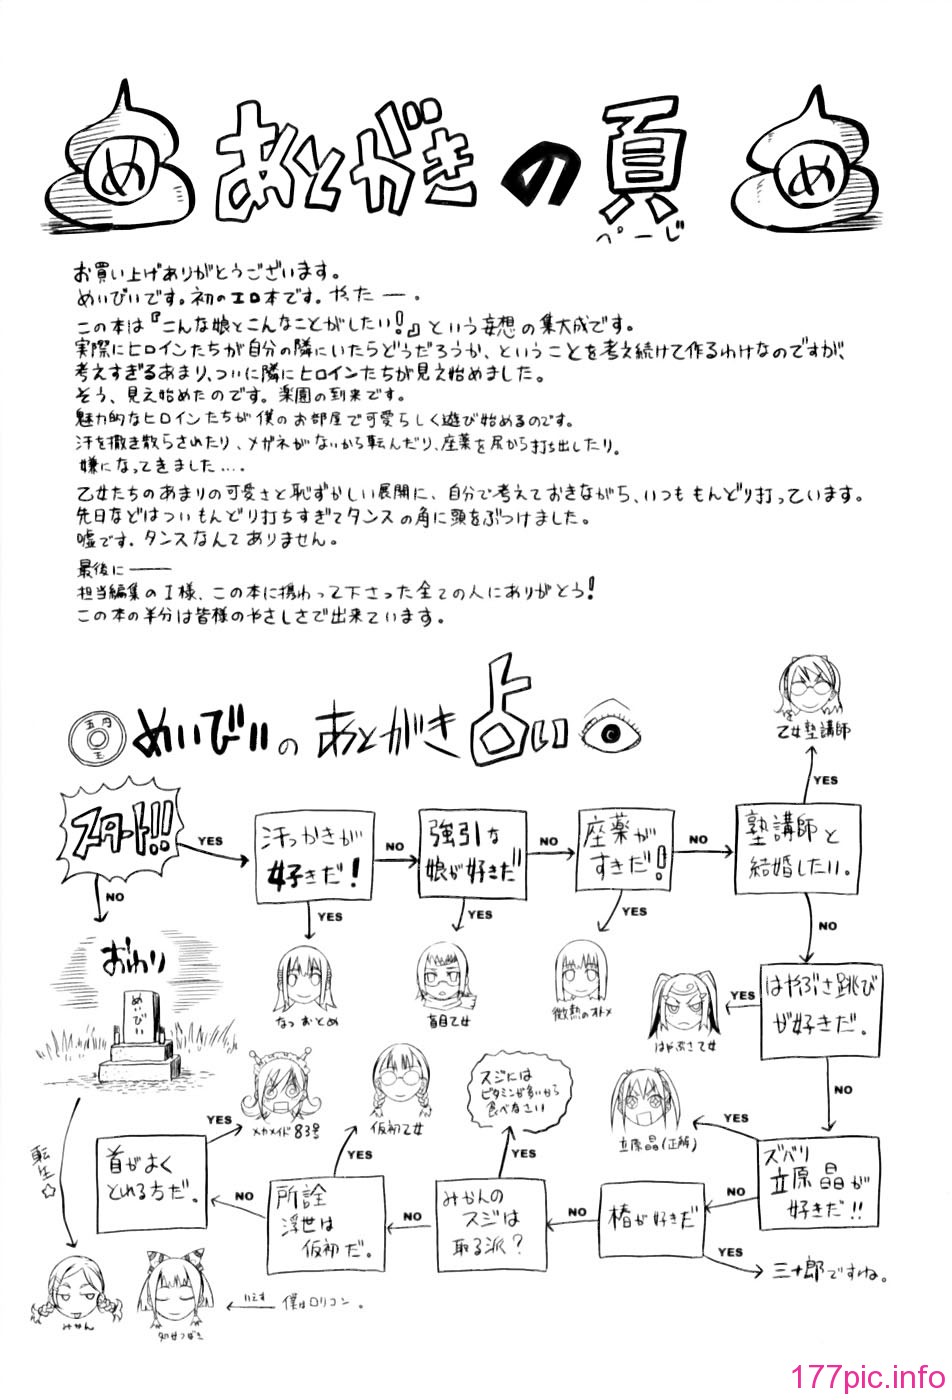 め
あとがきの頁
ぺーじ
め
お買い上げありがとうございます。
めいびいです。初のエロ本です。やったー。
この本は『こんな娘とこんなことがしたい!』という妄想の集大成です。
実際にヒロインたちが自分の隣にいたらどうだろうか、ということを考え続けて作るわけなのですが、
考えすぎるあまり、ついに隣にヒロインたちが見え始めました。
そう、見え始めたのです。楽園の到来です。
魅力的なヒロインたちが僕のお部屋で可愛らしく遊び始めるのです。
汗を撒き散らされたり、メガネがないから転んだり、座薬を尻から打ち出したり。
嫌になってきました….
乙女たちのあまりの可愛さと恥ずかしい展開に、自分で考えておきながら、いつももんどり打っています。
先日などはついもんどり打ちすぎてタンスの角に頭をぶつけました。
嘘です。タンスなんてありません。
最後に――
担当編集のI様、この本に携わって下さった全ての人にありがとう!
この本の半分は皆様のやさしさで出来ています。
五円
めいびいのあとがき占い
乙女塾講師
YES
スタート!!
YES
汗っかきが
好きだ!
NO
強引な
娘が好きだ
NO
座薬が
すきだ!
NO
塾講師と
結婚したい。
NO
YES
YES
YES
NO
おわり
めいびい
なつおとめ
盲目乙女
微熱のオトメ
はやぶさ乙女
YES
はやぶさ跳び
が好きだ。
NO
転生☆
メカメイド83号
仮初乙女
スジには
ビタミンが多いから
食べなさい
立原晶(正解)
YES
ズバリ
立原晶が
好きだ!!
NO
椿が好きだ
YES
三十郎ですね。
NO
みかんの
スジは
取る派?
YES
NO
所詮
浮世は
仮初だ。
YES
NO
首がよく
とれる方だ。
YES
みかん
幼女つばき
いえす
僕はロリコン。
177pic.info